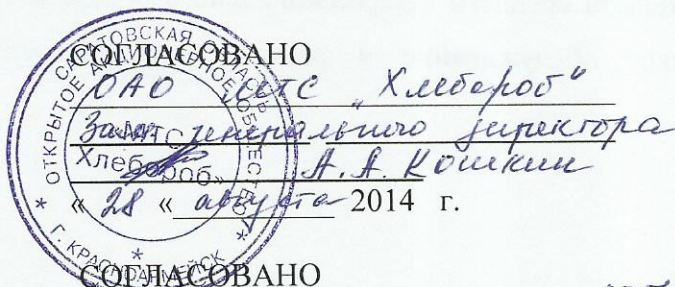 СОГЛАСОВАНО
ОАО МТС „Хлебороб"
Зам. генерального директора
А.А. Кошкин
« 28 « августа 2014 г.
САРАТОВСКАЯ ОБЛАСТЬ
ОТКРЫТОЕ АКЦИОНЕРНОЕ ОБЩЕСТВО
МТС
Хлебороб»
* Г. КРАСНОАРМЕЙСК *
СОГЛАСОВАНО